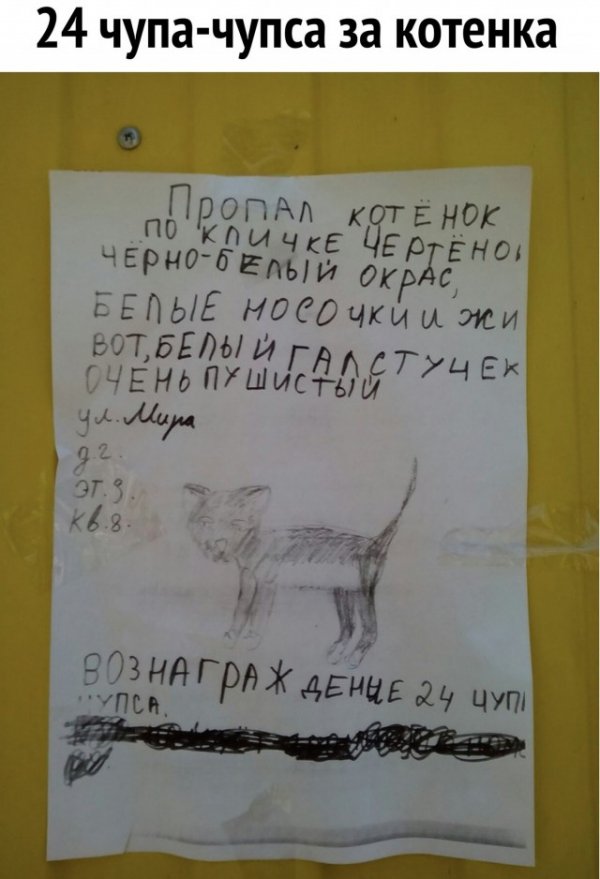 24 чупа-чупса за котенка
ПРОПАЛ КОТЁНОК
ПО КЛИЧКЕ ЧЕРТЁНО
ЧЁРНО-БЕЛЫЙ ОКРАС,
БЕЛЫЕ НОСОЧКИ И ЖИ
ВОТ, БЕЛЫЙ ГАЛСТУЧЕК
ОЧЕНЬ ПУШИСТЫЙ
ул. Мира
д. 2.
эт. 3.
Кв. 8.
ВОЗНАГРАЖДЕНИЕ 24 ЧУП
ЧУПСА.